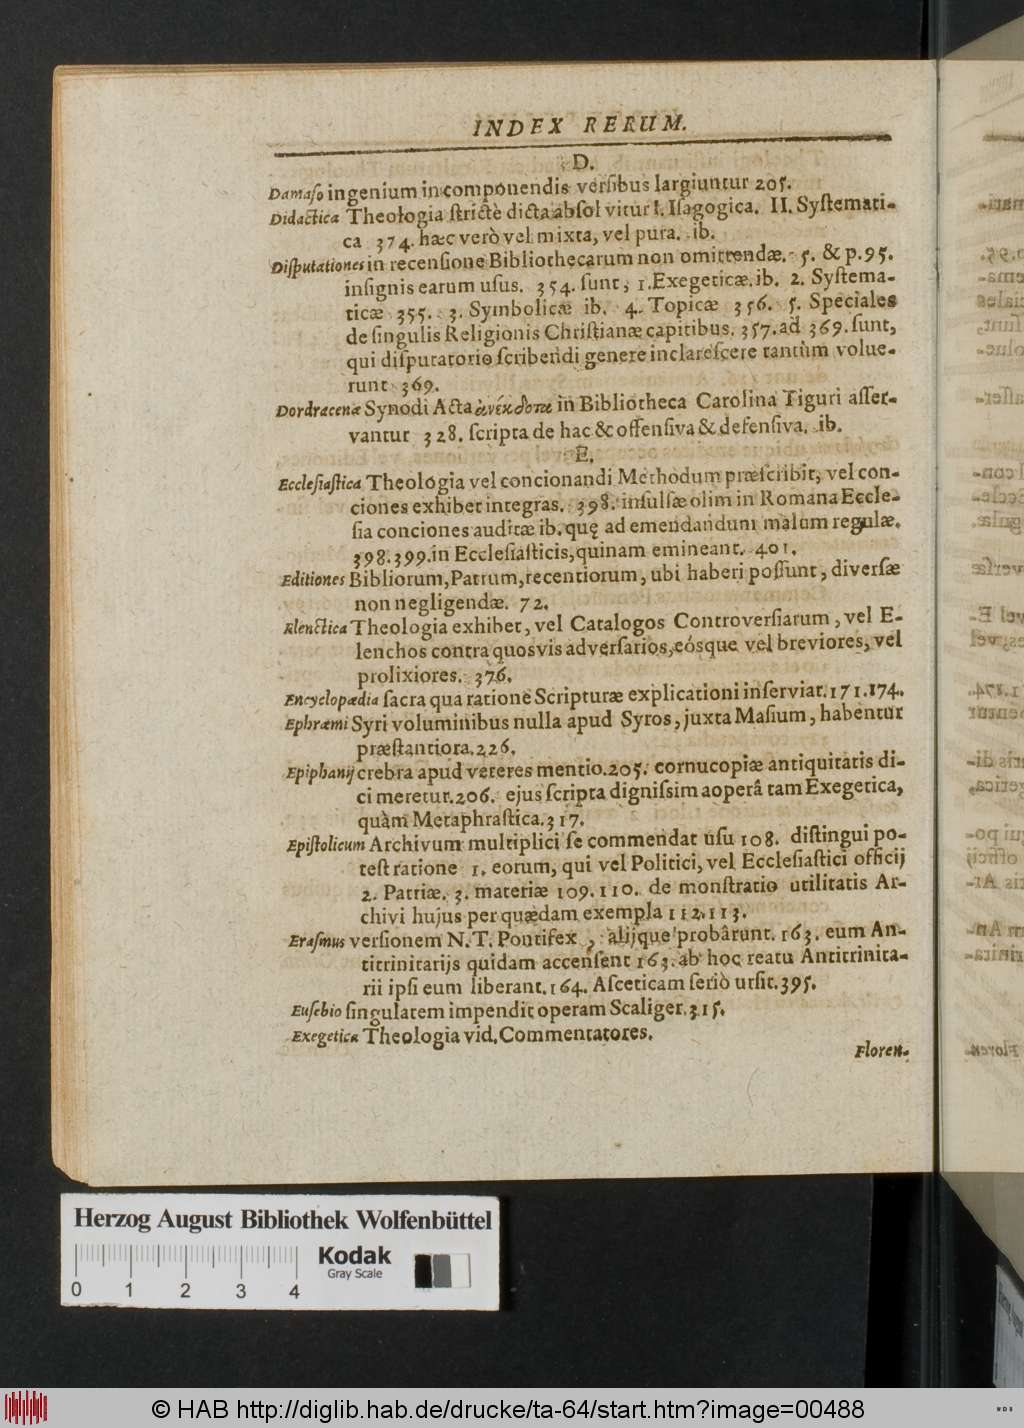 INDEX RERUM.
D.
Damaso ingenium in componendis versibus largiuntur 205.
Didactica Theologia strictè dicta absolvitur I. Isagogica. II. Systemati-
ca 374. hæc verò vel mixta, vel pura. ib.
Disputationes in recensione Bibliothecarum non omittendæ. 5. & p. 95.
insignis earum usus. 354. sunt, 1. Exegeticæ. ib. 2. Systema-
ticæ 355. 3. Symbolicæ ib. 4. Topicæ 356. 5. Speciales
de singulis Religionis Christianæ capitibus. 357. ad 369. sunt,
qui disputatorio scribendi genere inclarescere tantùm volue-
runt 369.
Dordracenæ Synodi Acta ἀνέκδοτα in Bibliotheca Carolina Tiguri asser-
vantur 328. scripta de hac & offensiva & defensiva. ib.
E.
Ecclesiastica Theologia vel concionandi Methodum præscribit, vel con-
ciones exhibet integras. 398. insulsæ olim in Romana Eccle-
sia conciones auditæ ib. quę ad emendandum malum regulæ.
398. 399. in Ecclesiasticis, quinam emineant. 401.
Editiones Bibliorum, Patrum, recentiorum, ubi haberi possunt, diversæ
non negligendæ. 72.
Elenctica Theologia exhibet, vel Catalogos Controversiarum, vel E-
lenchos contra quosvis adversarios, eósque vel breviores, vel
prolixiores. 376.
Encyclopædia sacra qua ratione Scripturæ explicationi inserviat. 171. 174.
Ephræmi Syri voluminibus nulla apud Syros, juxta Masium, habentur
præstantiora. 226.
Epiphanij crebra apud veteres mentio. 205. cornucopiæ antiquitatis di-
ci meretur. 206. ejus scripta dignissima operâ tam Exegetica,
quàm Metaphrastica. 317.
Epistolicum Archivum multiplici se commendat usu 108. distingui po-
test ratione 1. eorum, qui vel Politici, vel Ecclesiastici officij
2. Patriæ. 3. materiæ 109. 110. de monstratio utilitatis Ar-
chivi hujus per quædam exempla 112. 113.
Erasmus versionem N. T. Pontifex, alijque probârunt. 163. eum An-
titrinitarijs quidam accensent 163. ab hoc reatu Antitrinita-
rii ipsi eum liberant. 164. Asceticam seriò ursit. 395.
Eusebio singularem impendit operam Scaliger. 315.
Exegetica Theologia vid. Commentatores.
Floren-
Herzog August Bibliothek Wolfenbüttel
Kodak
Gray Scale
0 1 2 3 4
© HAB http://diglib.hab.de/drucke/ta-64/start.htm?image=00488